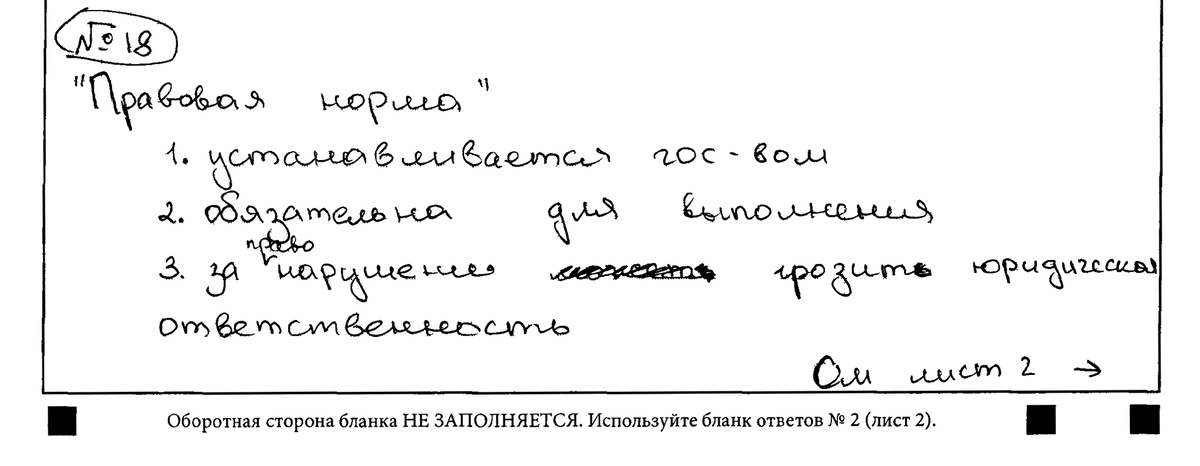 № 18
"Правовая норма"
1. устанавливается гос-вом
2. обязательна для выполнения
право
3. за нарушение грозить юридическая
ответственность
См лист 2 →
Оборотная сторона бланка НЕ ЗАПОЛНЯЕТСЯ. Используйте бланк ответов № 2 (лист 2).